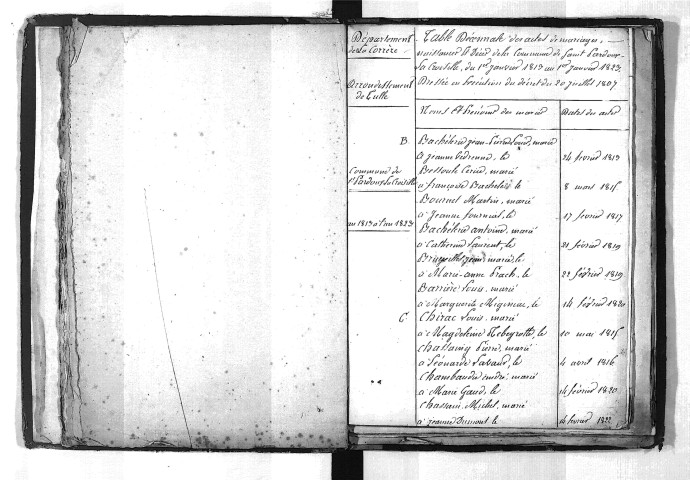 Département
de la Corrèze
Arrondissement
de Tulle
Commune de
St Pardoux la Croisille
du 1813 à l'an 1823
Table Décennale des actes de mariages,
naissances et Décès de la Commune de Saint Pardoux
la Croisille, du 1er janvier 1813 au 1er janvier 1823.
Dressée en Exécution du décret du 20 juillet 1807
Noms et Prénoms des mariés
Dates des actes
B
Bachélerie jean marié
à jeanne Vedrenne, le 24 février 1813
marié
à françoise Bachelerie le 8 mars 1815
Bournel Martin, marié
à Jeanne le 17 février 1817
Bachélerie antoine, marié
à Catherine Laurent, le 21 février 1819
jean, marié, le
à Marie-anne Prach, le 22 février 1819
Barrière Louis, marié
à Marguerite le 14 février 1820
C
Chirac Louis, marié
à Magdeleine Rebeyrotte, le 10 mai 1815
Chassaing Pierre, marié
à Léonarde le 4 avril 1816
Chambaudie marié
à Marie Gaud, le 14 février 1820
Michel, marié
à jeanne Dumont le 4 février 1822